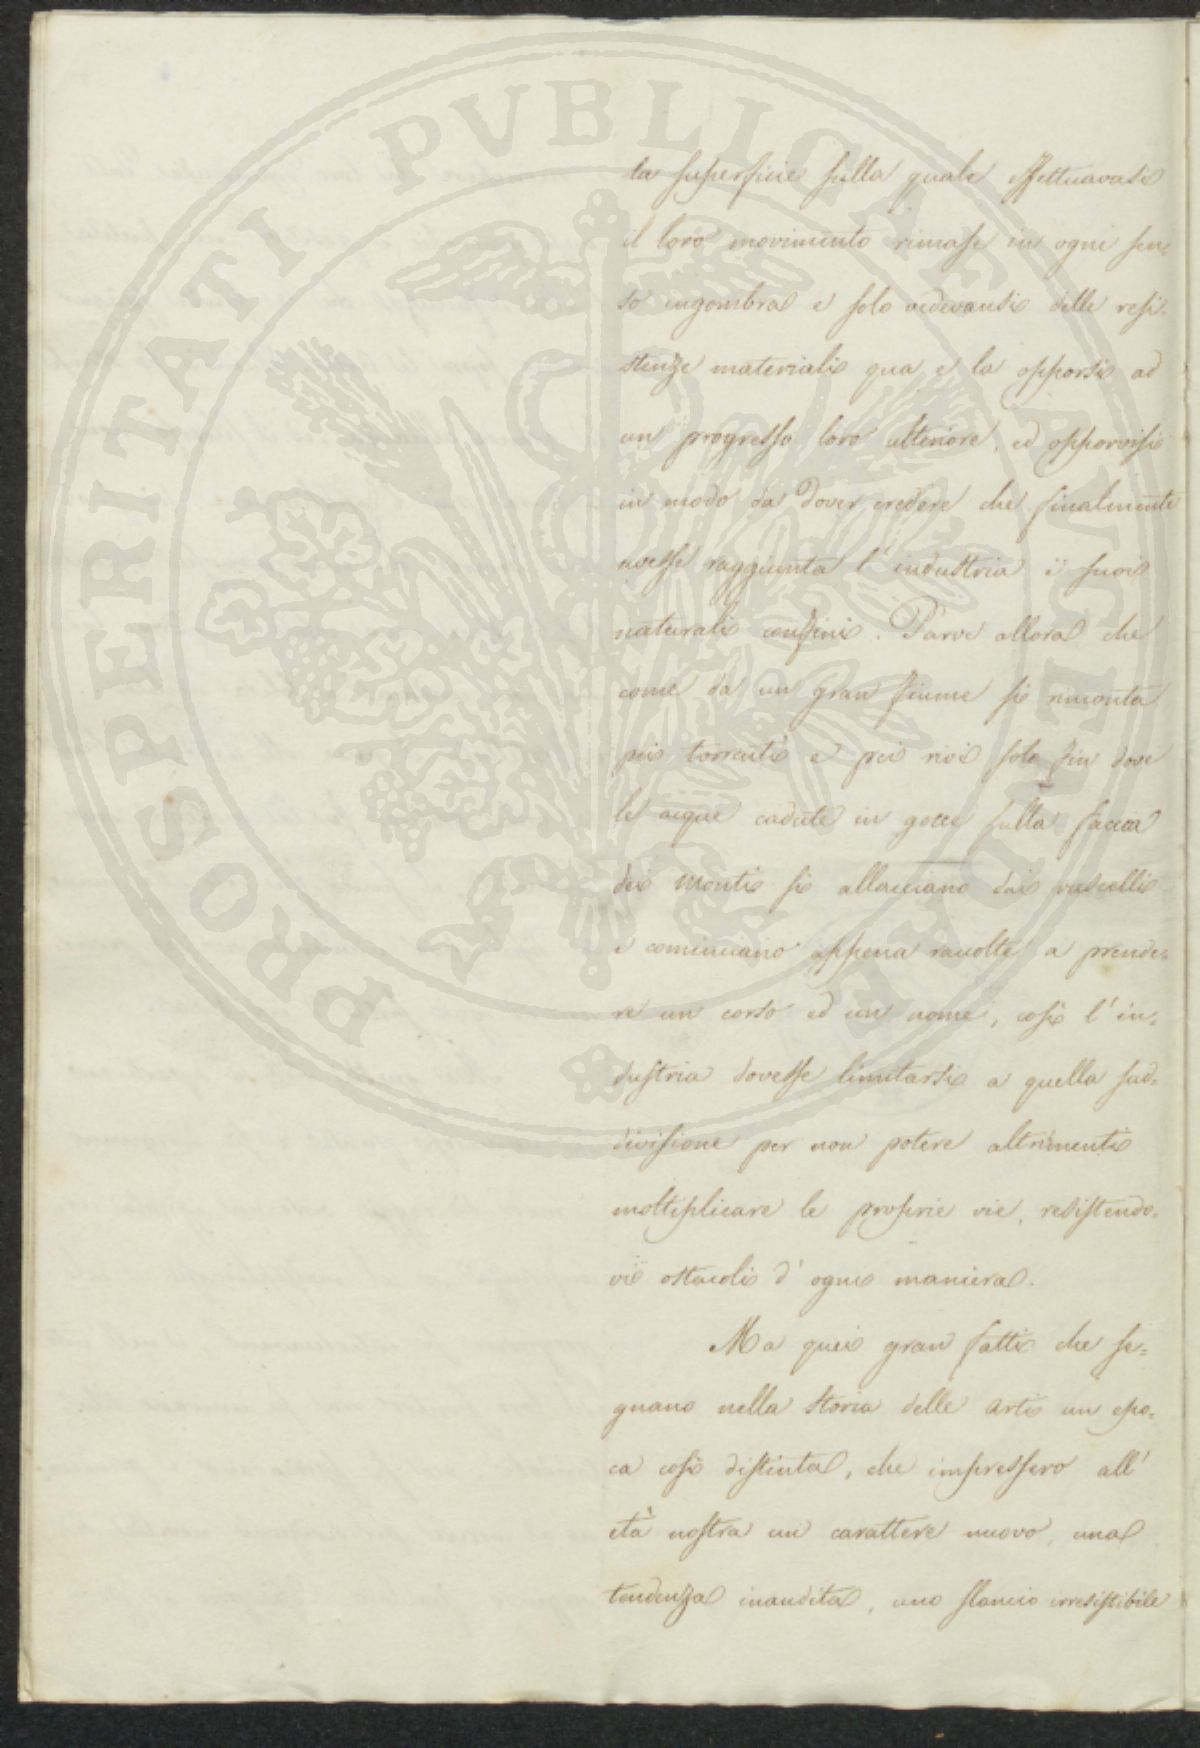 PROSPERITATI PVBLICAE AVGENDAE
la superficie sulla quale effettuavasi
il loro movimento rimase in ogni sen=
so ingombra e solo vedevansi delle resi=
stenze materiali qua e la opporsi ad
un progresso loro ulteriore, ed opporvisi
in modo da dover credere che finalmente
avesse raggiunta l'industria i suoi
naturali confini. Parve allora che
come da un gran fiume si rimonta
pei torrenti e pei rivi solo fin dove
le acque cadute in gocce sulla faccia
dei monti si allacciano dai ruscelli
e cominciano appena raccolte a prende=
re un corso ed un nome, così l'in=
dustria dovesse limitarsi a quella sud=
divisione per non potere altrimenti
moltiplicare le proprie vie, resistendo=
vi ostacoli d'ogni maniera.
Ma quei gran fatti che se=
gnano nella storia delle arti un epo=
ca così distinta, che impressero all'
età nostra un carattere nuovo, una
tendenza inaudita, uno slancio irresistibile